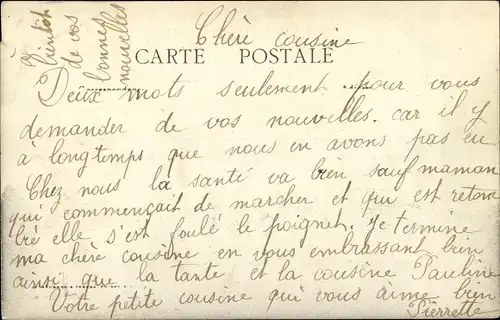 Chère cousine
CARTE POSTALE
Deux mots seulement pour vous
demander de vos nouvelles. car il y
à longtemps que nous en avons pas eu
Chez nous la santé va bien sauf maman
qui commençait de marcher et qui est retom
bré elle s'est foulé le poignet. Je termine
ma chère cousine en vous embrassant bien
ainsi que la tante et la cousine Pauline
Votre petite cousine qui vous aime bien
Pierrette
bientôt
de vos
bonnes
nouvelles